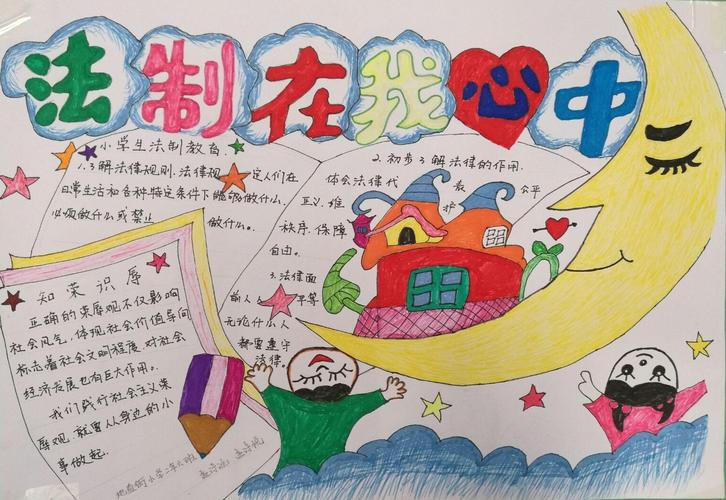 法制在我心中
小学生法制教育.
1.了解法律规则.法律规定人们在
日常生活和各种特定条件下能够做什么.
必须做什么或禁止做什么。
2.初步了解法律的作用.
体会法律代表公平
正义.维护
秩序.保障
自由。
3.法律面
前人 平等
无论什么人
都要遵守
法律。
知荣识辱
正确的荣辱观不仅影响
社会风气,体现社会价值导向
标志着社会文明程度.对社会
经济发展也有巨大作用。
我们践行社会主义荣
辱观.就要从身边的小
事做起.
小学二年六班